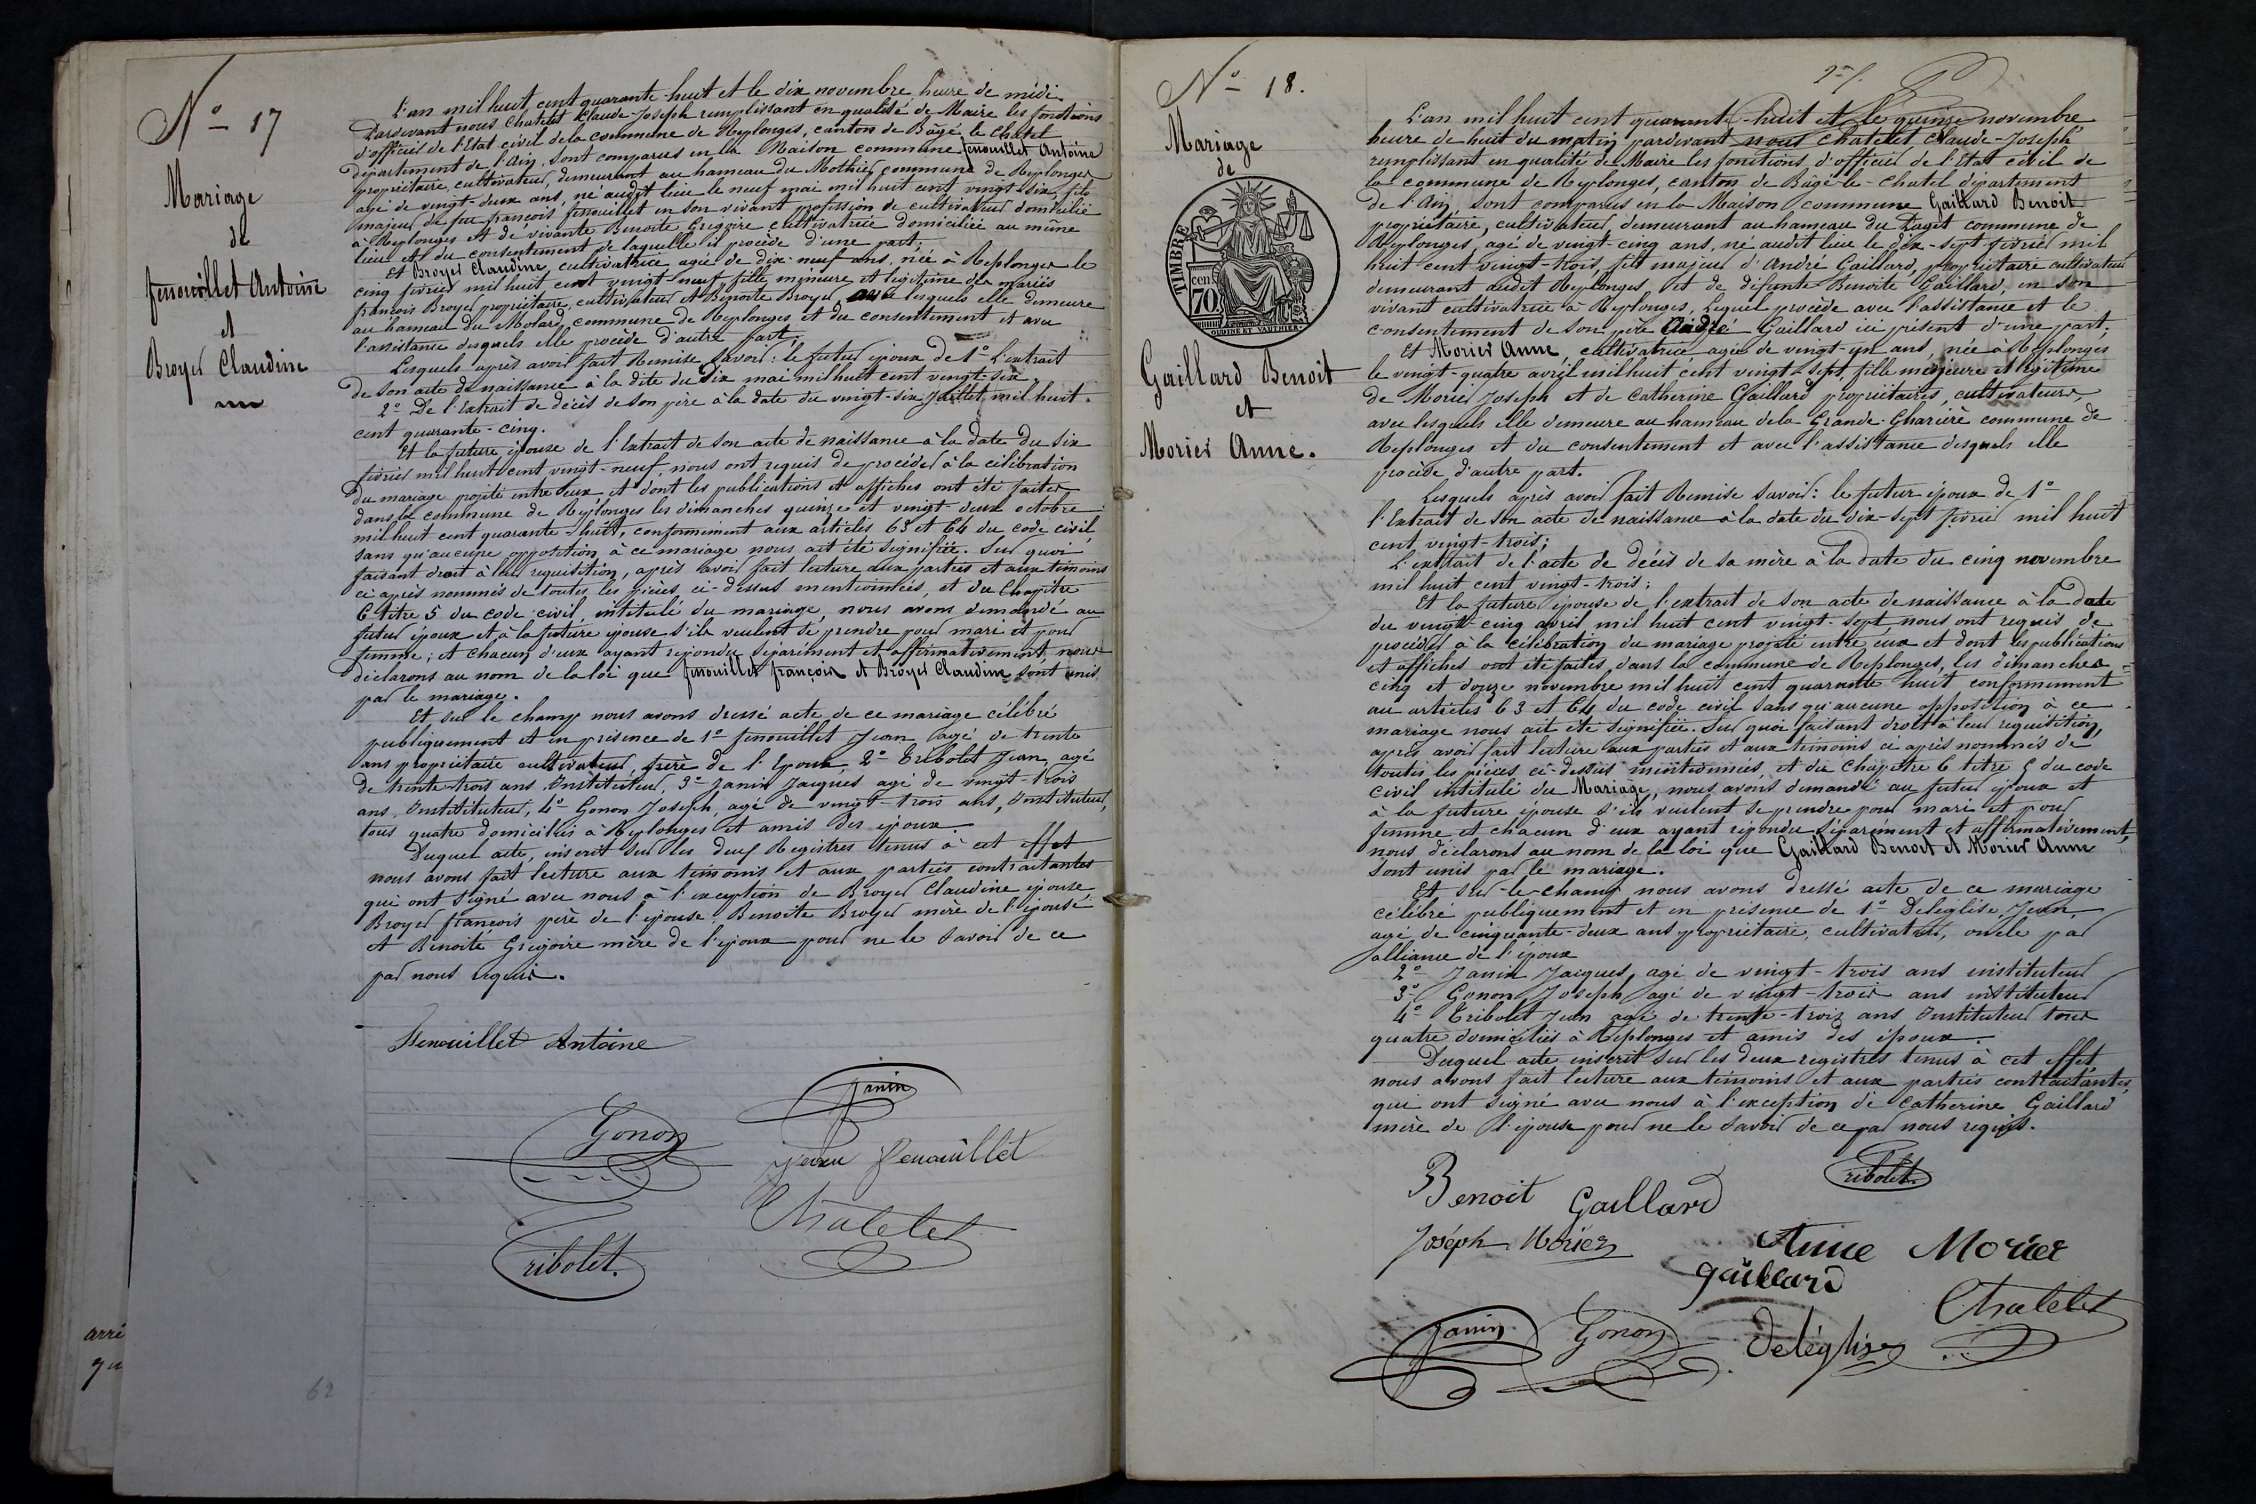 N° 17
Mariage
de
fenouillet Antoine
et
Broyer Claudine
L'an mil huit cent quarante-huit et le dix novembre heure de midi.
Pardevant nous Chatelet Claude-Joseph remplissant en qualité de Maire les fonctions
d'officier de l'Etat civil de la commune de Replonges, canton de Bâgé le Chatel
département de l'Ain, sont comparus en la Maison commune fenouillet Antoine
propriétaire cultivateur, demeurant au hameau du Mothier commune de Replonges
agé de vingt-deux ans, né audit lieu le neuf mai mil huit cent vingt-six fils
majeur de feu françois fenouillet en son vivant profession de cultivateur domicilié
à Replonges et de vivante Benoite Gregoire cultivatrice domiciliée au même
lieu et du consentement de laquelle il procède d'une part;
Et Broyer Claudine, cultivatrice agée de dix-neuf ans, née à Replonges le
cinq février mil huit cent vingt-neuf, fille mineure et légitime des mariés
françois Broyer propriétaire cultivateur et Benoite Broyer, avec lesquels elle demeure
au hameau du Molard commune de Replonges et du consentement et avec
l'assistance desquels elle procède d'autre part;
Lesquels après avoir fait Remise Savoir: le futur époux de 1° L'extrait
de son acte de naissance à la dite du dix mai mil huit cent vingt-six.
2° De l'Extrait de décès de son père à la date du vingt-six juillet mil huit
cent quarante-cinq.
Et la future épouse de l'Extrait de son acte de naissance à la date du six
février mil huit cent vingt-neuf, nous ont requis de procéder à la célébration
du mariage projeté entre eux et dont les publications et affiches ont été faites
dans la commune de Replonges les dimanches quinze et vingt-deux octobre
mil huit cent quarante-huit, conformément aux articles 63 et 64 du code civil,
sans qu'aucune opposition à ce mariage nous ait été signifiée. Sur quoi
faisant droit à leur requisition, après avoir fait lecture aux parties et aux témoins
ci après nommés de toutes les pièces ci-dessus mentionnées, et du Chapitre
6 titre 5 du code civil, intitulé du mariage, nous avons demandé au
futur époux et à la future épouse s'ils veulent se prendre pour mari et pour
femme; et chacun d'eux ayant répondu séparément et affirmativement, nous
déclarons au nom de la loi que fenouillet françois et Broyer Claudine sont unis
par le mariage.
Et sur le champ nous avons dressé acte de ce mariage célébré
publiquement et en présence de 1° fenouillet Jean agé de trente
ans propriétaire cultivateur, frère de l'Epoux, 2° Tribolet Jean, agé
de trente trois ans Instituteur, 3° Janin Jacques agé de vingt-trois
ans, Instituteur, 4° Gonon Joseph, agé de vingt-trois ans, Instituteur,
tous quatre domiciliés à Replonges et amis des époux.
Duquel acte, inscrit sur les deux Registres tenus à cet effet
nous avons fait lecture aux témoins et aux parties contractantes
qui ont signé avec nous à l'exception de Broyer Claudine épouse
Broyer françois père de l'épouse Benoite Broyer mère de l'épouse
et Benoite Gregoire mère de l'époux pour ne le savoir de ce
par nous requis.
Fenouillet Antoine
Janin
Gonon
jean Fenouillet
Chatelet
Tribolet.
62
arré
qu
N° 18.
Mariage
de
TIMBRE
70 cen
Gaillard Benoit
et
Morier Anne.
L'an mil huit cent quarante-huit et le quinze novembre
heure de huit du matin pardevant nous Chatelet Claude-Joseph
remplissant en qualité de Maire les fonctions d'officier de l'Etat civil de
la commune de Replonges, canton de Bâgé-le-Chatel département
de l'Ain, sont comparus en la Maison commune Gaillard Benoit
propriétaire, cultivateur, demeurant au hameau du commune de
Replonges, agé de vingt-cinq ans, né audit lieu le dix-sept février mil
huit cent vingt-trois, fils majeur d'André Gaillard, propriétaire cultivateur
demeurant audit Replonges, et de défunte Benoite Gaillard, en son
vivant cultivatrice à Replonges, Lequel procède avec l'assistance et le
consentement de son père André Gaillard ici présent d'une part;
Et Morier Anne, cultivatrice agée de vingt-un ans, née à Replonges
le vingt-quatre avril mil huit cent vingt-sept, fille majeure et légitime
de Morier Joseph et de Catherine Gaillard propriétaires, cultivateurs,
avec lesquels elle demeure au hameau de la Grande-Charière commune de
Replonges et du consentement et avec l'assistance desquels elle
procède d'autre part.
Lesquels après avoir fait Remise Savoir: le futur époux de 1°
l'Extrait de son acte de naissance à la date du dix-sept février mil huit
cent vingt-trois;
L'extrait de l'acte de décès de sa mère à la date du cinq novembre
mil huit cent vingt-trois;
Et la future épouse de l'extrait de son acte de naissance à la date
du vingt-cinq avril mil huit cent vingt-sept nous ont requis de
procéder à la célébration du mariage projeté entre eux et dont les publications
et affiches ont été faites, dans la commune de Replonges, les dimanches
cinq et douze novembre mil huit cent quarante huit conformement
au articles 63 et 64 du code civil sans qu'aucune opposition à ce
mariage nous ait été signifiée. Sur quoi faisant droit à leur requisition,
après avoir fait lecture aux parties et aux témoins ci après nommés de
toutes les pièces ci-dessus mentionnées, et du chapitre 6 titre 5 du code
civil intitulé du Mariage, nous avons demandé au futur époux et
à la future épouse s'ils veulent se prendre pour mari et pour
femme et chacun d'eux ayant répondu séparément et affirmativement,
nous déclarons au nom de la loi que Gaillard Benoit et Morier Anne
sont unis par le mariage.
Et sur-le-champ nous avons dressé acte de ce mariage
célébré publiquement et en présence de 1° Deleglise Jean
agé de cinquante-deux ans propriétaire, cultivateur, oncle par
alliance de l'époux
2° Janin Jacques, agé de vingt-trois ans instituteur
3° Gonon Joseph agé de vingt-trois ans instituteur
4° Tribolet Jean agé de trente-trois ans Instituteur tous
quatre domiciliés à Replonges et amis des époux.
Duquel acte inscrit sur les deux registres tenus à cet effet
nous avons fait lecture aux témoins et aux parties contractantes,
qui ont signé avec nous à l'exception de Catherine Gaillard
mère de l'épouse pour ne le savoir de ce par nous requis.
Tribolet.
Benoit Gaillard
Joséph Morier
Anne Morier
gaillard
Chatelet
Janin
Gonon
Deléglise